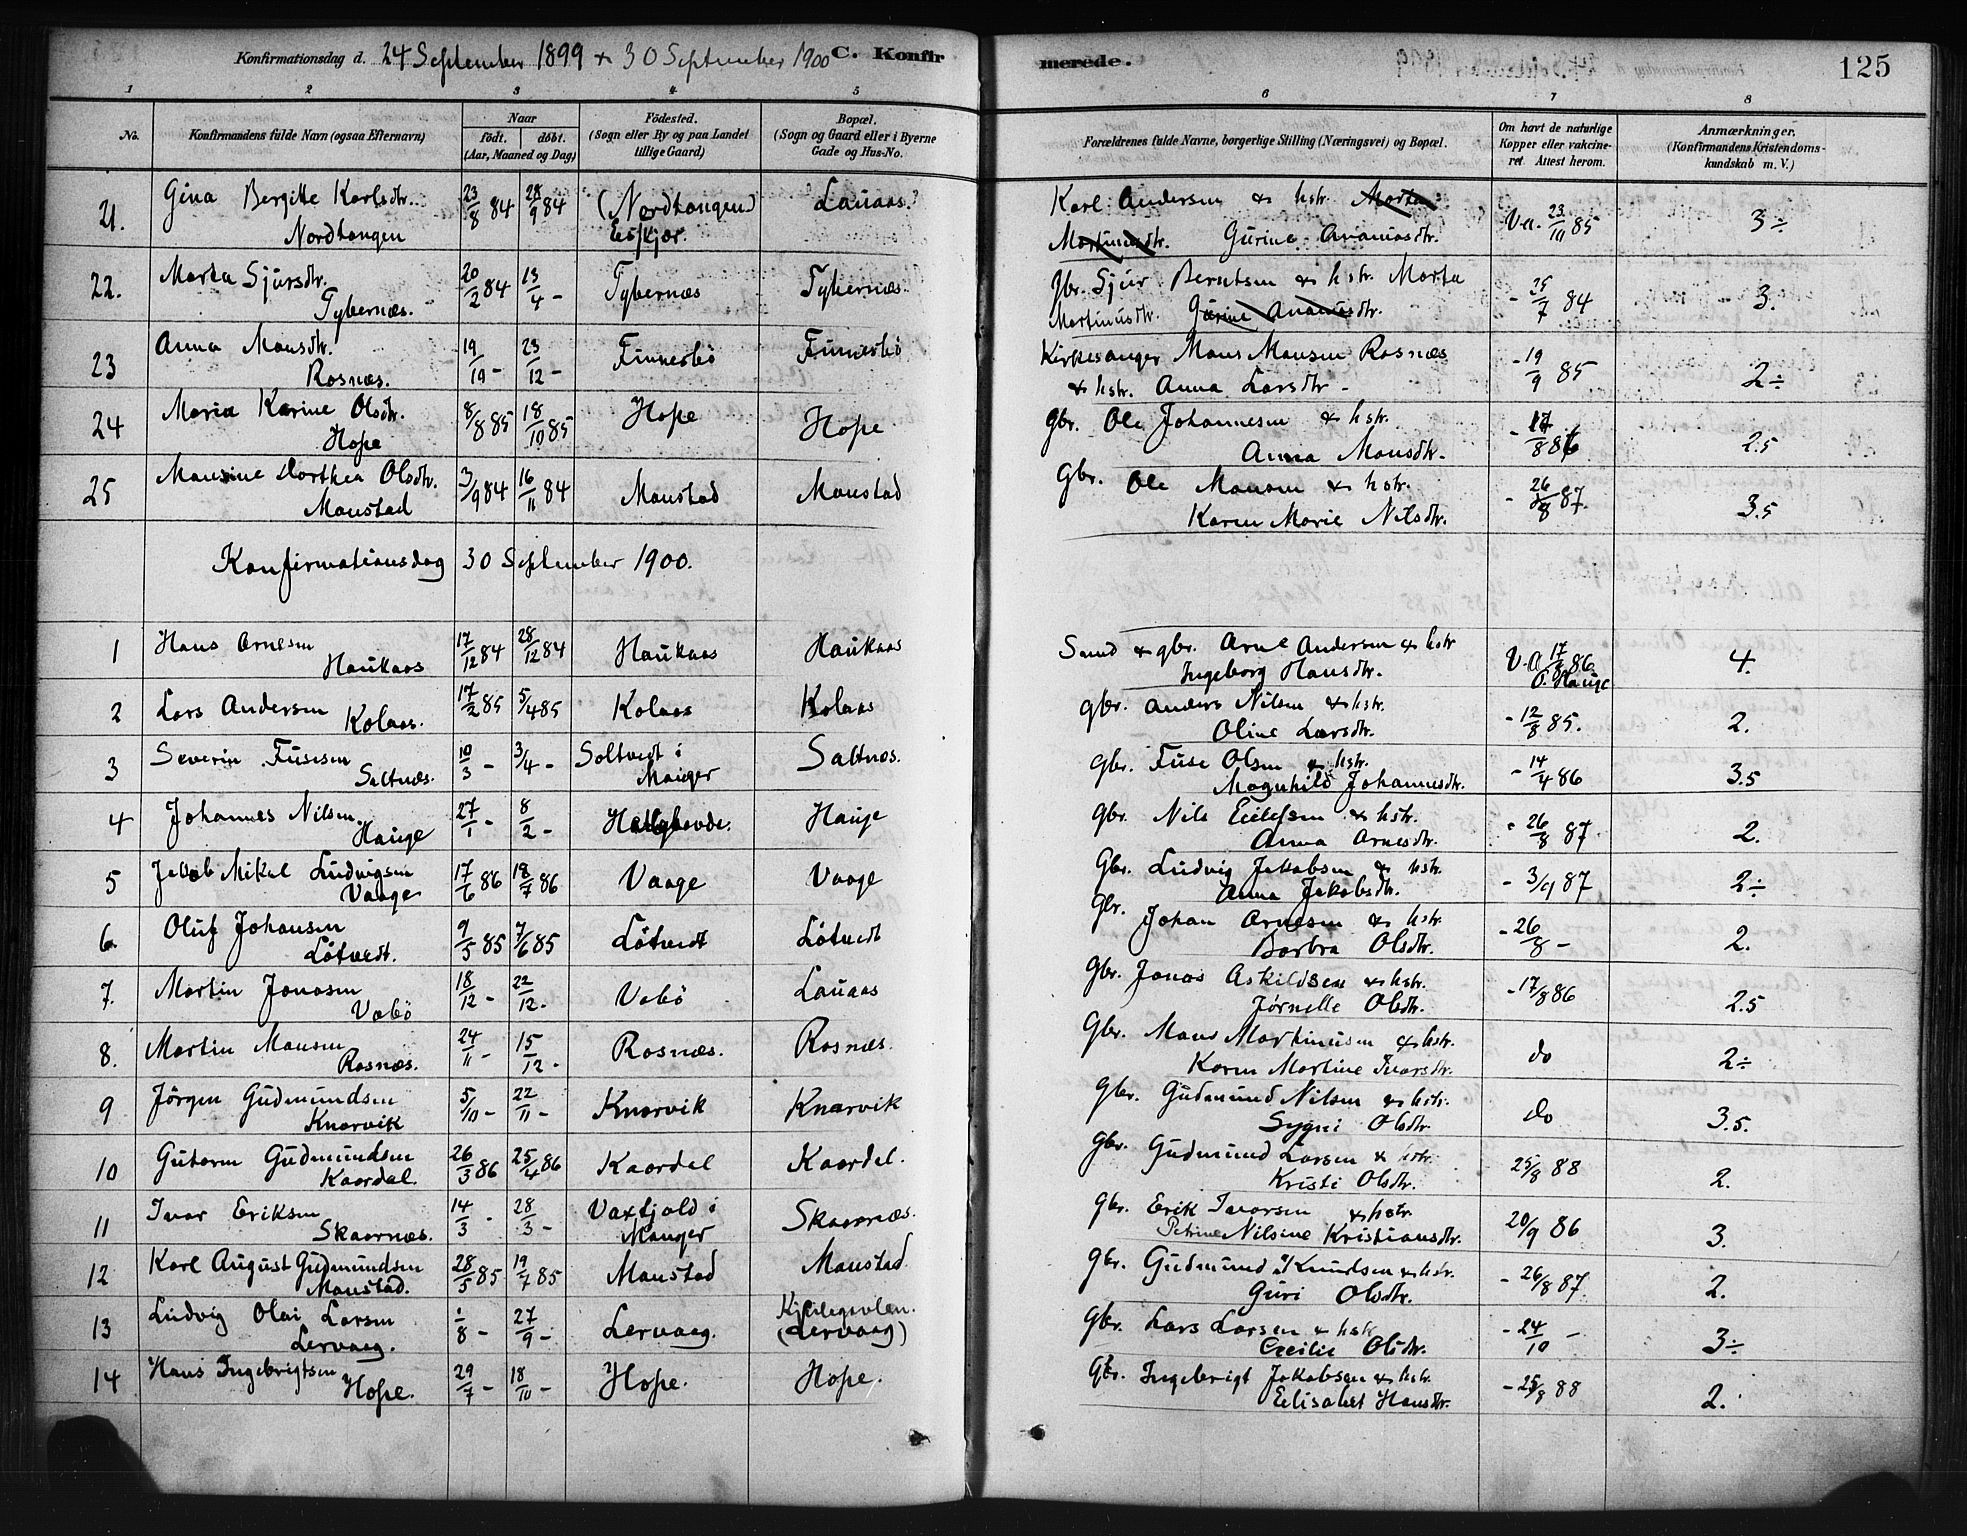 Konfirmationsdag d. 24 September 1899 & 30 September 1900 C. Konfirmerede. 125
1 2 3 4 5 6 7 8
No. Konfirmandens fulde Navn (ogsaa Efternavn) Naar födt. döbt. (Aar, Maaned og Dag) Födested. (Sogn eller By og paa Landet tillige Gaard) Bopæl. (Sogn og Gaard eller i Byerne Gade og Hus-No. Forældrenes fulde Navne, borgerlige Stilling (Næringsvei) og Bopæl. Om havt de naturlige Kopper eller vakcineret. Attest herom. Anmærkninger. (Konfirmandens Kristendomskundskab m. V.)
21. Gina Bergitte Karlsdtr. 23/8 84 28/9 84 (Nordtangen) Lauaas. Karl Andersen & hstr. Marta Va. 23/10 85 3÷
Nordtangen Eiskjær. Martinusdtr. Gurine Ananiasdtr.
22. Marta Sjursdtr. 20/2 84 13/4 - Tybernæs Tybernæs. Gbr. Sjur Berntsen & hstr. Marta - 25/7 84 3.
Tybernæs. Martinusdtr. Gurine Ananiasdtr.
23 Anna Monsdtr. 19/10 - 23/12 - Finnesbö Finnesbö Kirkesanger Mons Monsen Rosnæs - 19/9 85 2÷
Rosnæs. & hstr. Anna Larsdtr -
24 Maria Karine Olsdtr. 8/8 85 18/10 85 Hope Hope Gbr. Ole Johannesen & hstr. - 17/8 86 2.5
Hope Anna Monsdtr.
25 Monsine Dorthea Olsdtr. 3/9 84 16/11 84 Monstad Monstad Gbr. Ole Monsen & hstr. - 26/8 87. 3.5
Monstad Karen Marie Nilsdtr.
Konfirmationsdag 30 September 1900.
1 Hans Arnesen 17/12 84 28/12 84 Haukaas Haukaas Smed & gbr. Arne Andersen & hstr V.A 17/8 86 4.
Haukaas Ingeborg Hansdtr. O. Hauge
2 Lars Andersen 17/2 85 5/4 85 Kolaas Kolaas gbr. Anders Nilsen & hstr. - 12/8 85. 2.
Kolaas. Oline Larsdtr.
3 Severin Fusesen 10/3 - 3/4 - Soltvedt i Saltnæs. gbr. Fuse Olsen & hstr. - 14/4 86 3.5
Saltnæs. Manger Magnhild Johannesdtr.
4 Johannes Nilsen 27/1 - 8/2 - Hauge gbr. Nils Eilefsen & hstr. - 26/8 87 2.
Hauge Anna Arnesdtr.
5 Jakob Mikal Ludvigsen 17/6 86 18/7 86 Vaage Vaage Gbr. Ludvig Jakobsen & hstr. - 3/9 87 2÷
Vaage Anna Jakobsdtr.
6 Oluf Johansen 9/5 85 7/6 85 Lötvedt Lötvedt Gbr. Johan Arnesen & hstr. - 26/8 - 2.
Lötvedt. Barbra Olsdtr.
7. Martin Jonasen 18/12 - 22/12 - Vabö Lauaas Gbr. Jonas Askildsen & hstr. - 17/8 86 2.5
Vabö Jörnelle Olsdtr.
8. Martin Monsen 24/11 - 15/12 - Rosnæs. Rosnæs. Gbr. Mons Martinusen & hstr. do 2÷
Rosnæs. Karen Martine Ivarsdtr.
9 Jörgen Gudmundsen 5/10 - 22/11 - Knarvik Knarvik Gbr. Gudmund Nilsen & hstr. do 3.5.
Knarvik Sygni Olsdtr.
10 Gutorm Gudmundsen 26/3 86 25/4 86 Kaardal Kaardal. Gbr. Gudmund Larsen & hstr. 25/8 88 2.
Kaardal. Kristi Olsdtr.
11 Ivar Eriksen 14/3 - 28/3 - Vaxfjold i Skaarnæs. Gbr. Erik Ivarsen & hstr. 20/9 86 3.
Skaarnæs. Manger Petrine Nilsine Kristiansdtr.
12 Karl August Gudmundsen 28/5 85 19/7 85 Monstad Monstad. Gbr. Gudmund Knudsen & hstr. - 26/8 87. 2.
Monstad. Guri Olsdtr.
13 Ludvig Olai Larsen 1/8 - 27/9 - Lervaag. Gbr. Lars Larsen & hstr - 24/10 - 3÷
Lervaag. (Lervaag) Cecilie Olsdtr.
14 Hans Ingebrigtsen 29/7 - 18/10 - Hope. Hope. Gbr. Ingebrigt Jakobsen & hstr. - 25/8 88 2.
Hope. Elisabet Hansdtr.